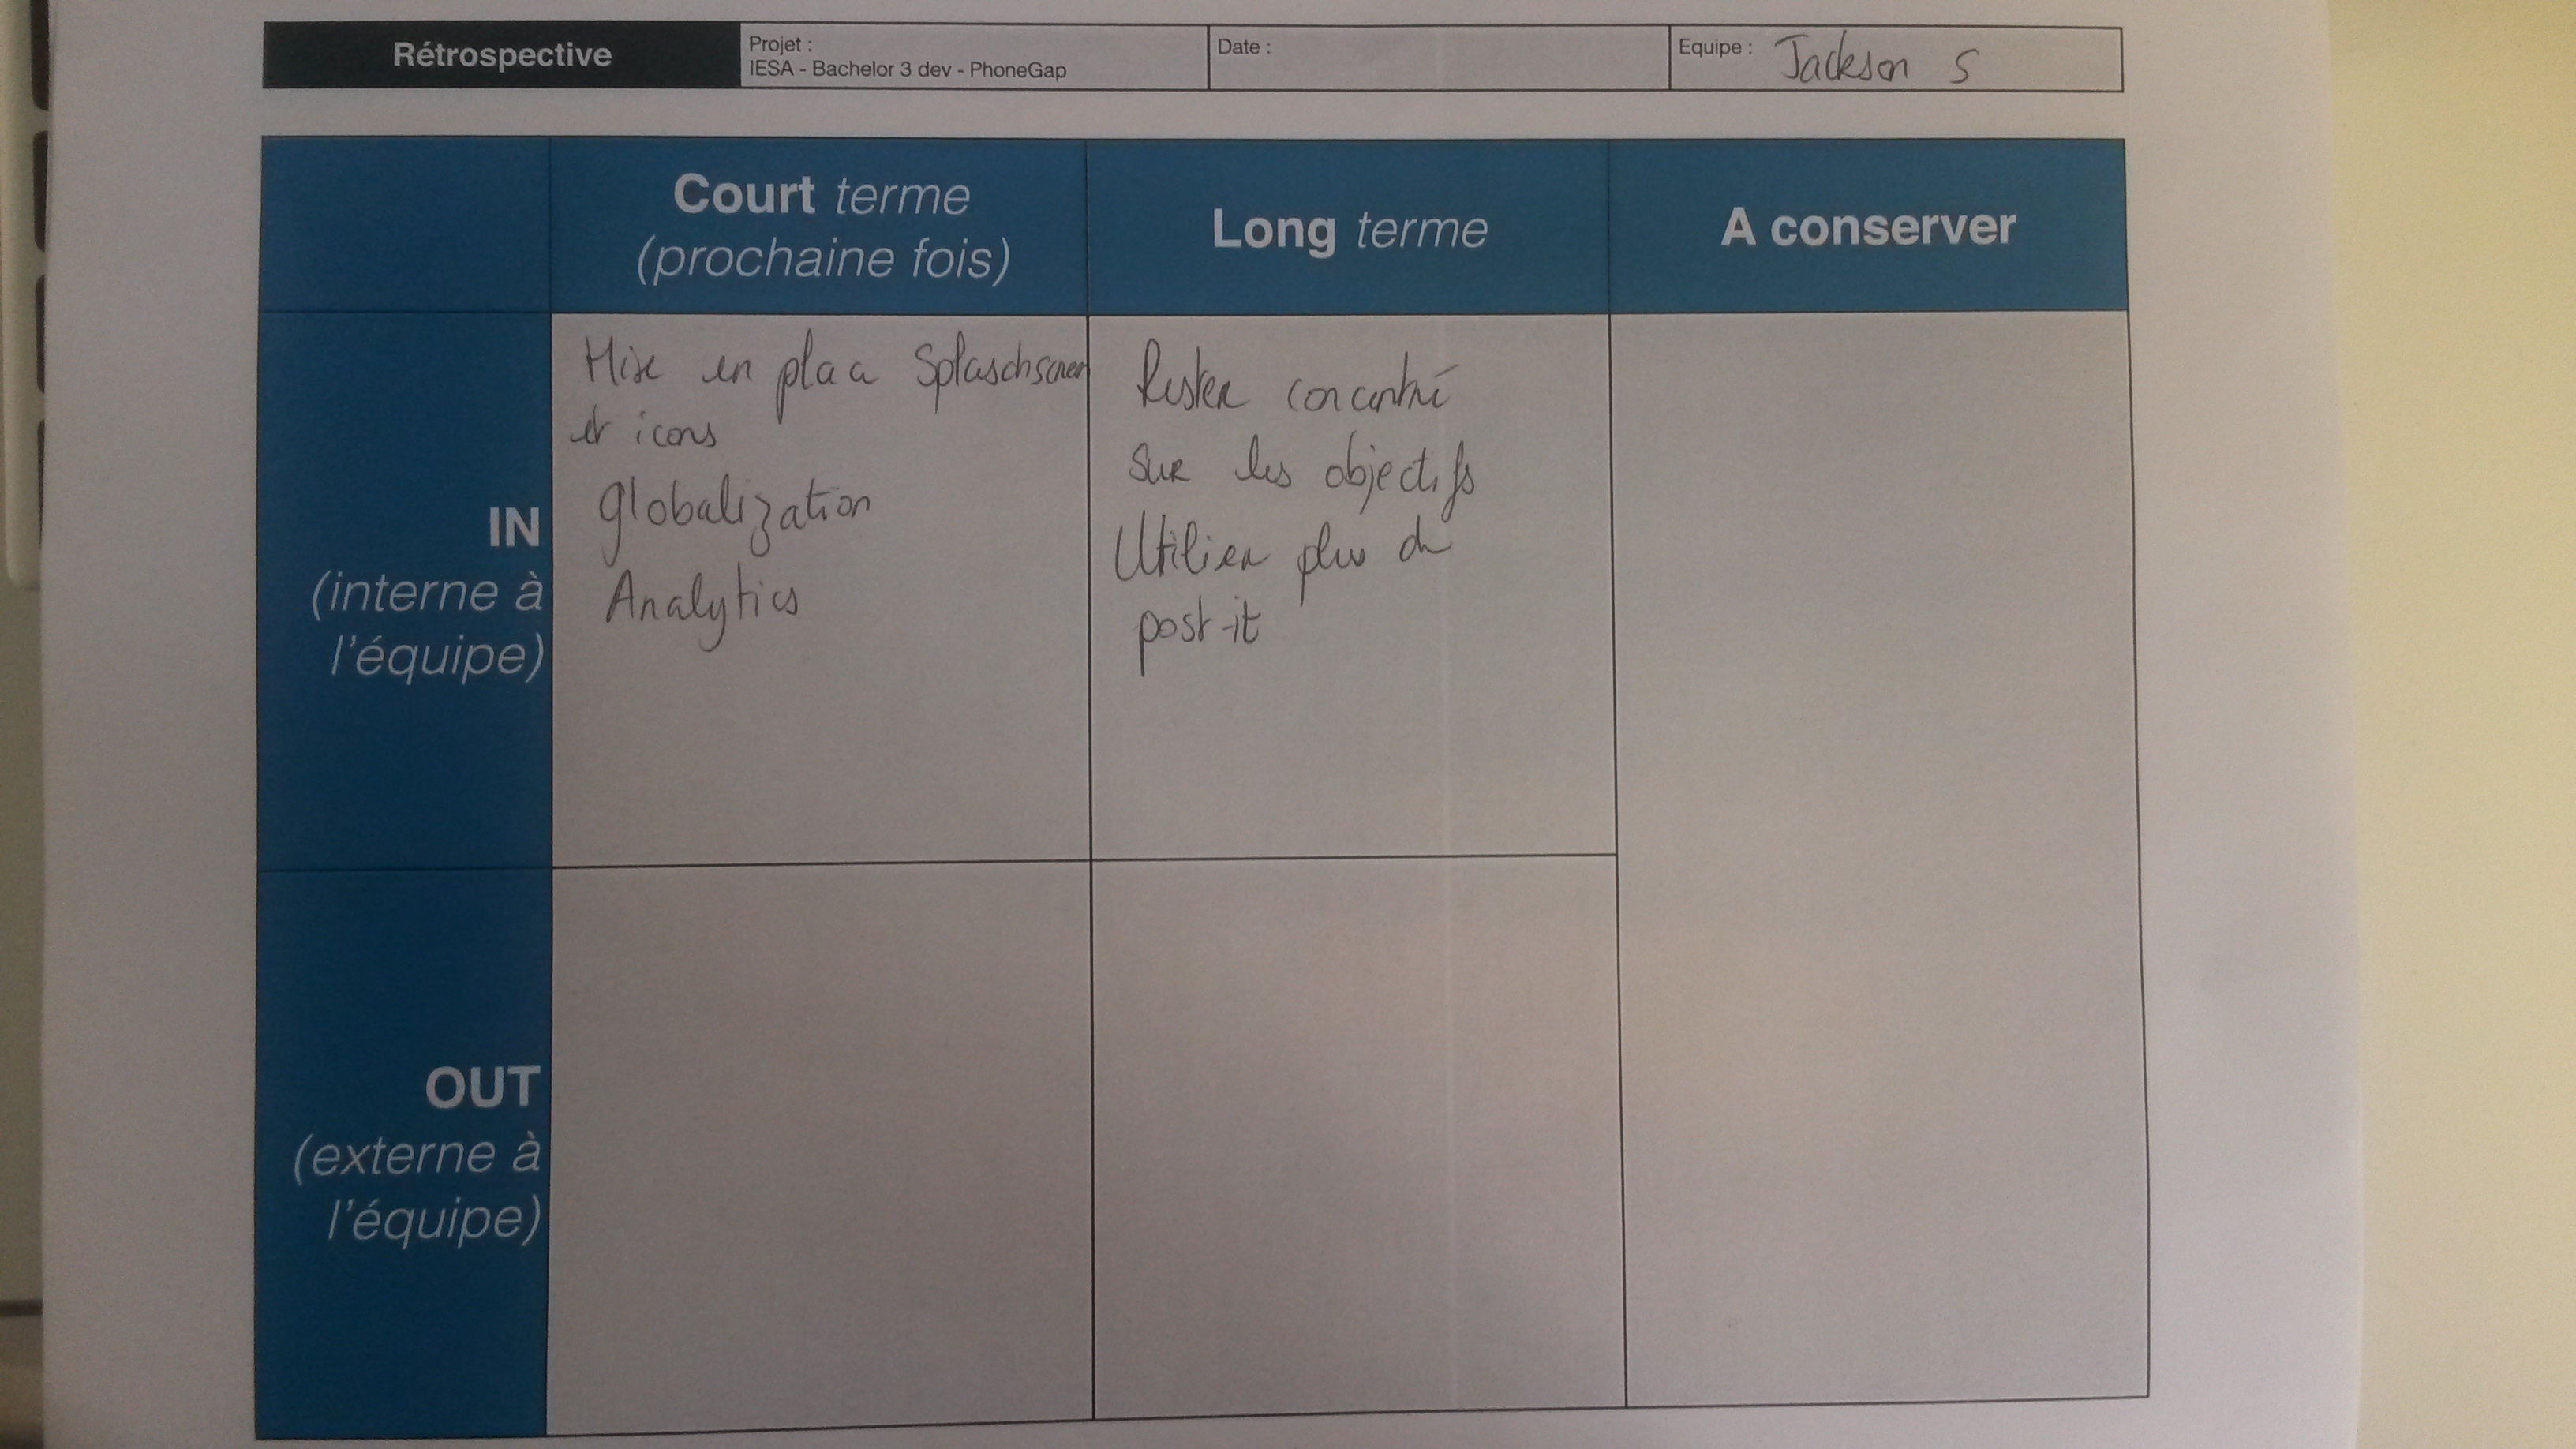 Rétrospective
Projet :
IESA - Bachelor 3 dev - PhoneGap
Date :
Equipe : Jackson S
Court terme
(prochaine fois)
Long terme
A conserver
IN
(interne à
l'équipe)
Mise en place Splaschscreen
et icons
Globalization
Analytics
Rester concentré
sur les objectifs
Utiliser plus de
post-it
OUT
(externe à
l'équipe)